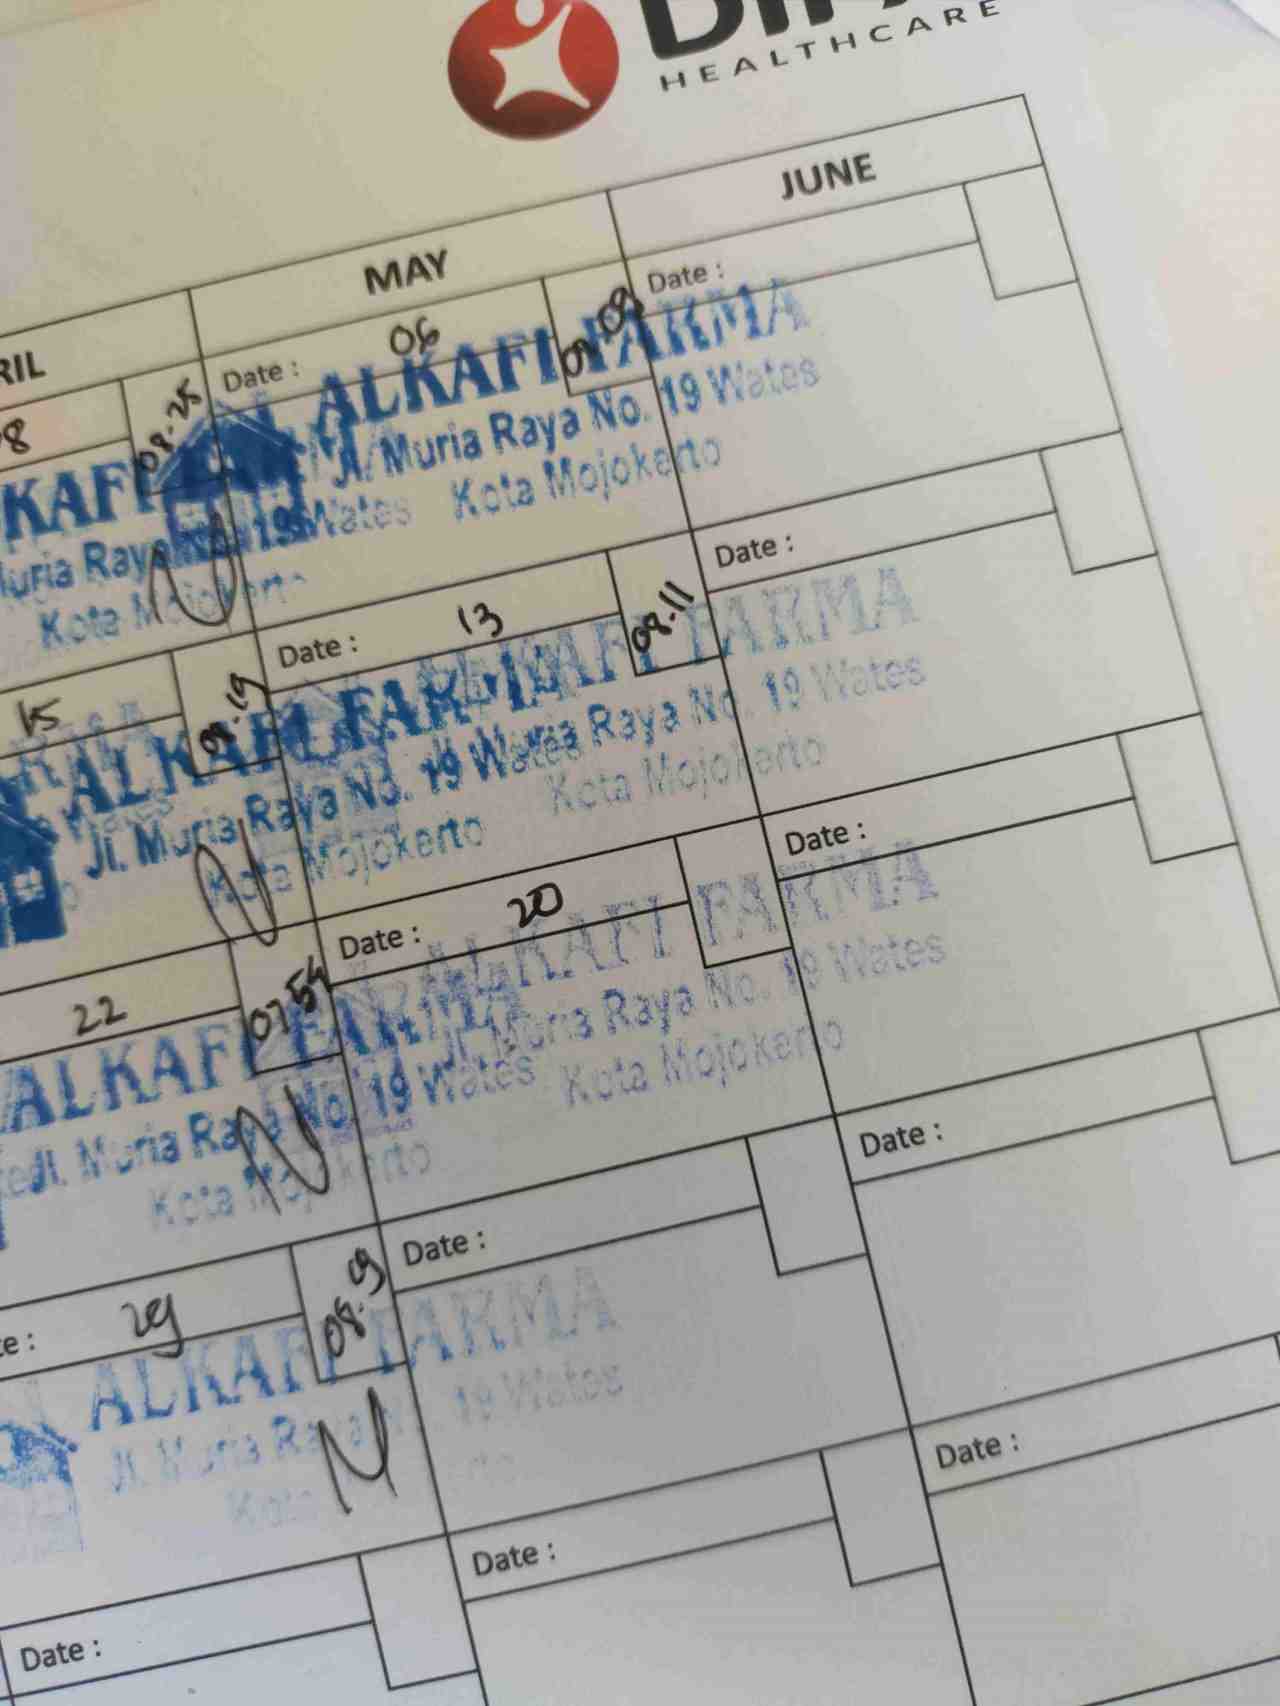 HEALTHCARE
RIL
MAY
JUNE
8
08.25
Date : 06
09 09
Date :
KAFI
ALKAFI FARMA
Jl. Muria Raya No. 19 Wates
Kota Mojokerto
Muria Raya No. 19 Wates
Kota Mojokerto
15
08.19
Date : 13
08.11
Date :
ALKAFI FARMA
Jl. Muria Raya No. 19 Wates
Kota Mojokerto
ALKAFI FARMA
Raya No. 19 Wates
Kota Mojokerto
22
07.54
Date : 20
Date :
ALKAFI FARMA
Jl. Muria Raya No. 19 Wates
Kota Mojokerto
ALKAFI FARMA
Jl. Muria Raya No. 19 Wates
Kota Mojokerto
te : 29
08.19
Date :
Date :
ALKAFI FARMA
Jl. Muria Raya 19 Wates
Kota
Date :
Date :
Date :